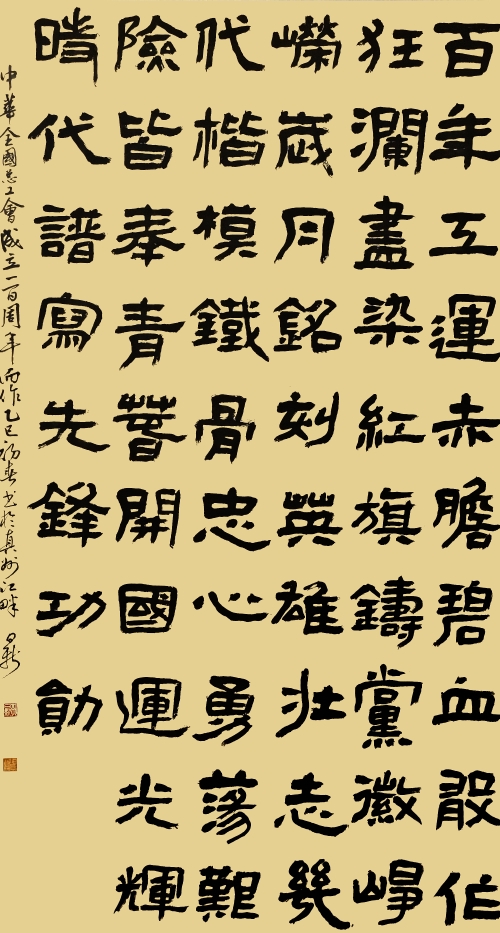 百年工運赤膽碧血敢作
狂瀾盡染紅旗鑄黨徽崢
嶸歲月銘刻英雄壯志幾
代楷模鐵骨忠心勇蕩艱
險皆奉青春開國運光輝
時代譜寫先鋒功勛
中華全國总工會成立一百周年而作乙巳初春书於真州江畔